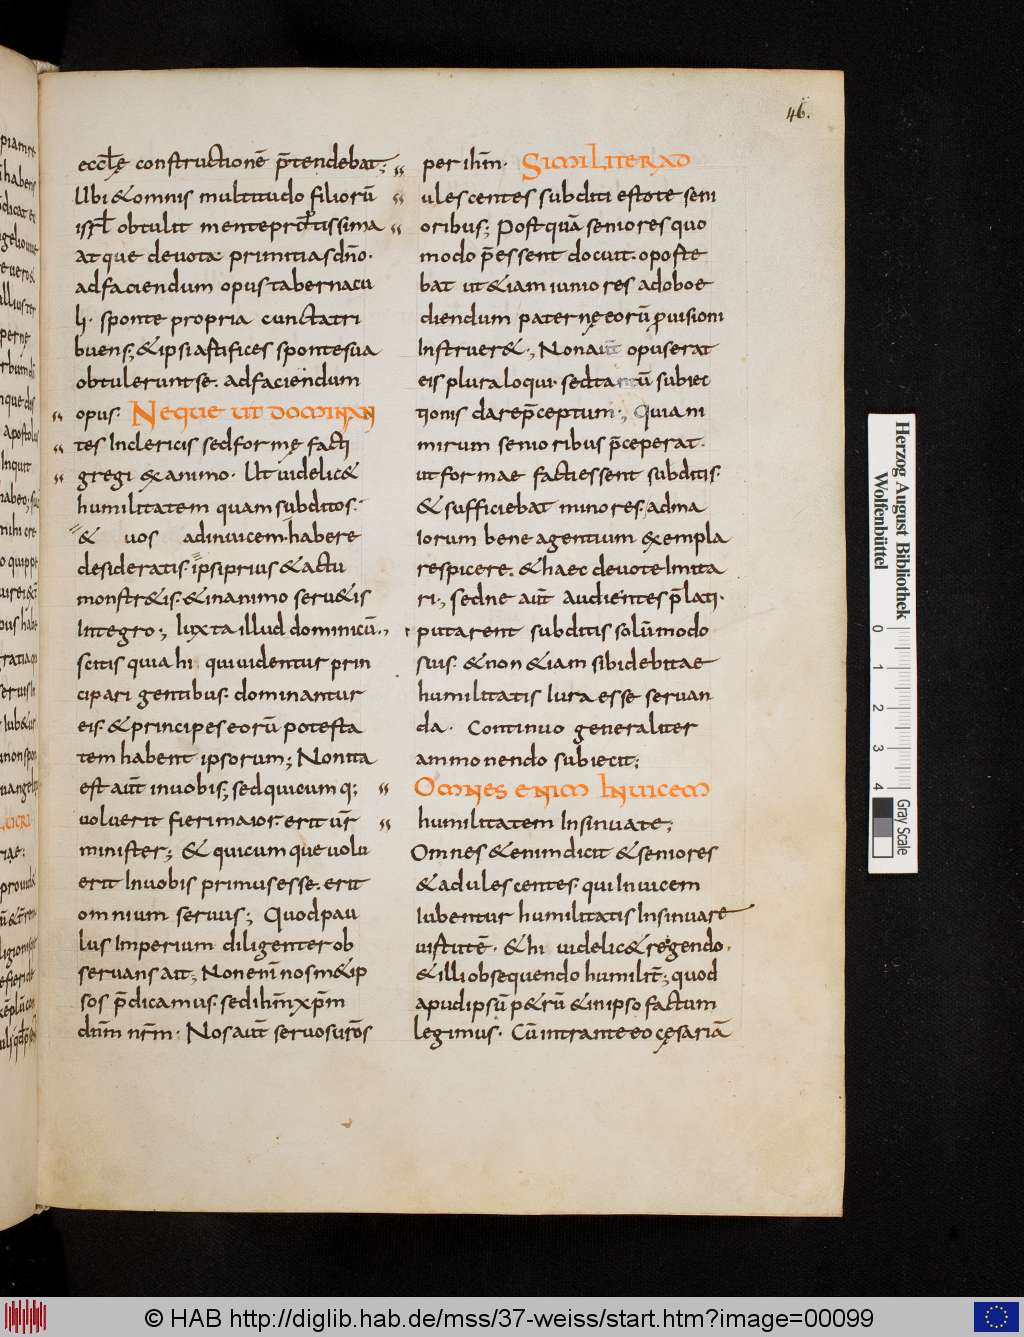 46.
eccłę constructionē p̄tendebat;
Ubi & omnis multitudo filiorū
isrł obtulit mente prōtissima
atque devota primitias dn̄o.
ad faciendum opus tabernacu
li. sponte propria cunctatri
buens; & ipsi artifices sponte sua
obtulerunt se. ad faciendum
opus. Neque ut dominan
tes In clericis sed formę facti
gregi ex animo. Ut videlic&
humilitatem quam subditos.
& vos ad invicem habere
desideratis. ipsi prius & actu
monstr&is. & in animo serv&is
Integro; Iuxta illud dominicū.,
scitis quia hi qui videntur prin
cipari gentibus. dominantur
eis. & principes eorū potesta
tem habent ipsorum; Non ita
est aūt in vobis; sed quicumq;
voluerit fieri maior. erit vr̄
minister; & quicumque volu
erit In vobis primus esse. erit
omnium servus; Quod pau
lus Imperium diligenter ob
servans ait; Non enī nosm&ip
sos p̄dicamus. sed ihm̄ xpm̄
dn̄m nr̄m. Nos aūt servos vr̄os
per ihm̄. Similiter ad
ulescentes subditi estote seni
oribus; Postquā seniores quo
modo p̄essent docuit. oporte
bat ut &iam iuniores ad oboe
diendum paternę eorū provisioni
Instruer&., Non aūt opus erat
eis plura loqui. sed tantū subiec
tionis dare p̄ceptum., Quia ni
mirum senioribus p̄ceperat.
ut formae facti essent subditis.
& sufficiebat minores. ad ma
iorum bene agentium exempla
respicere. & haec devote Imita
ri., sed ne aūt audientes p̄lati.
putarent subditis solūmodo
suis. & non &iam sibi debitae
humilitatis Iura esse servan
da. Continuo generaliter
ammonendo subiecit;
Omnes enim Invicem
humilitatem Insinuate;
Omnes & enim dicit & seniores
& adulescentes. qui Invicem
Iubentur humilitatis Insinuare
virtutē. & hi videlic& regendo.
& illi obsequendo humilit̄; quod
apud ipsū p&rū & in ipso factum
legimus. Cū intrante eo cęsariā
Herzog August Bibliothek
Wolfenbüttel
0 1 2 3 4
Gray Scale
© HAB http://diglib.hab.de/mss/37-weiss/start.htm?image=00099